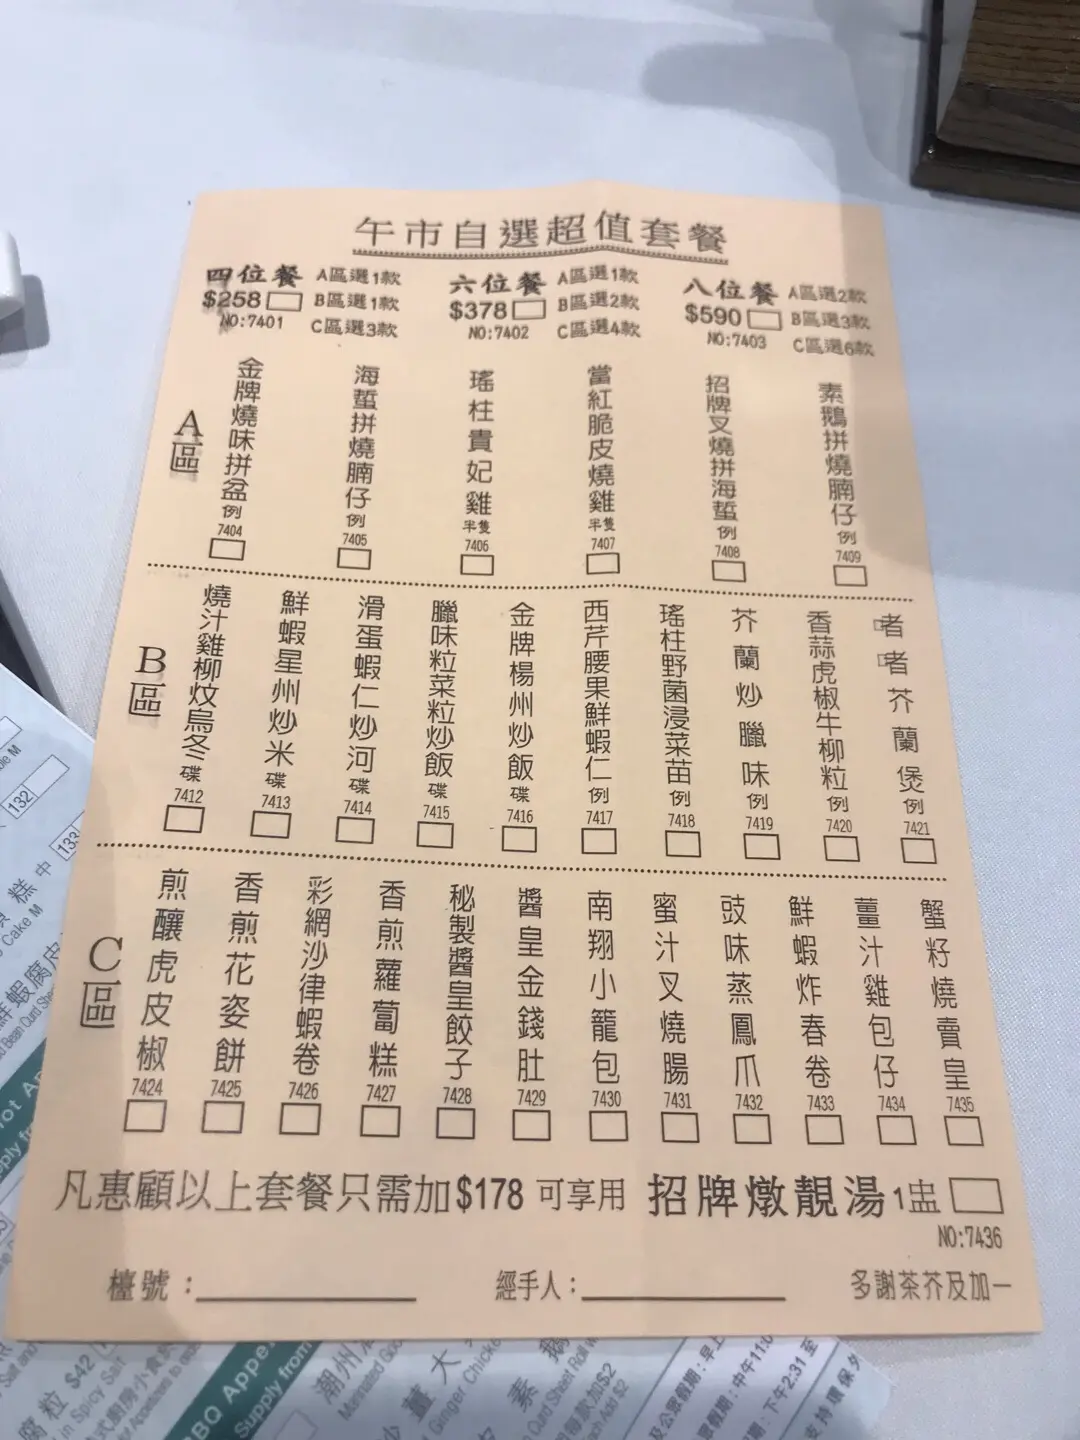 午市自選超值套餐
四位餐 A區選1款
$258 B區選1款
NO:7401 C區選3款
六位餐 A區選1款
$378 B區選2款
NO:7402 C區選4款
八位餐 A區選2款
$590 B區選3款
NO:7403 C區選6款
A區
金牌燒味拼盆例 7404
海蜇拼燒腩仔例 7405
瑤柱貴妃雞半隻 7406
當紅脆皮燒雞半隻 7407
招牌叉燒拼海蜇例 7408
素鵝拼燒腩仔例 7409
B區
燒汁雞柳炆烏冬碟 7412
鮮蝦星州炒米碟 7413
滑蛋蝦仁炒河碟 7414
臘味粒菜粒炒飯碟 7415
金牌楊州炒飯碟 7416
西芹腰果鮮蝦仁例 7417
瑤柱野菌浸菜苗例 7418
芥蘭炒臘味例 7419
香蒜虎椒牛柳粒例 7420
啫啫芥蘭煲例 7421
C區
煎釀虎皮椒 7424
香煎花姿餅 7425
彩網沙律蝦卷 7426
香煎蘿蔔糕 7427
秘製醬皇餃子 7428
醬皇金錢肚 7429
南翔小籠包 7430
蜜汁叉燒腸 7431
豉味蒸鳳爪 7432
鮮蝦炸春卷 7433
薑汁雞包仔 7434
蟹籽燒賣皇 7435
凡惠顧以上套餐只需加$178 可享用 招牌燉靚湯1盅
NO:7436
檯號：
經手人：
多謝茶芥及加一
132
133
糕 中
Cake M
鮮蝦腐皮
腐粒 $42
in Spicy Salt
BBQ Appe
Supply from
潮州
Ginger Chicke
素 鵝